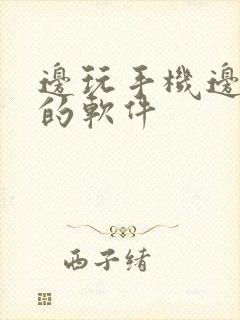 邊玩手機邊
的軟件
西子绪